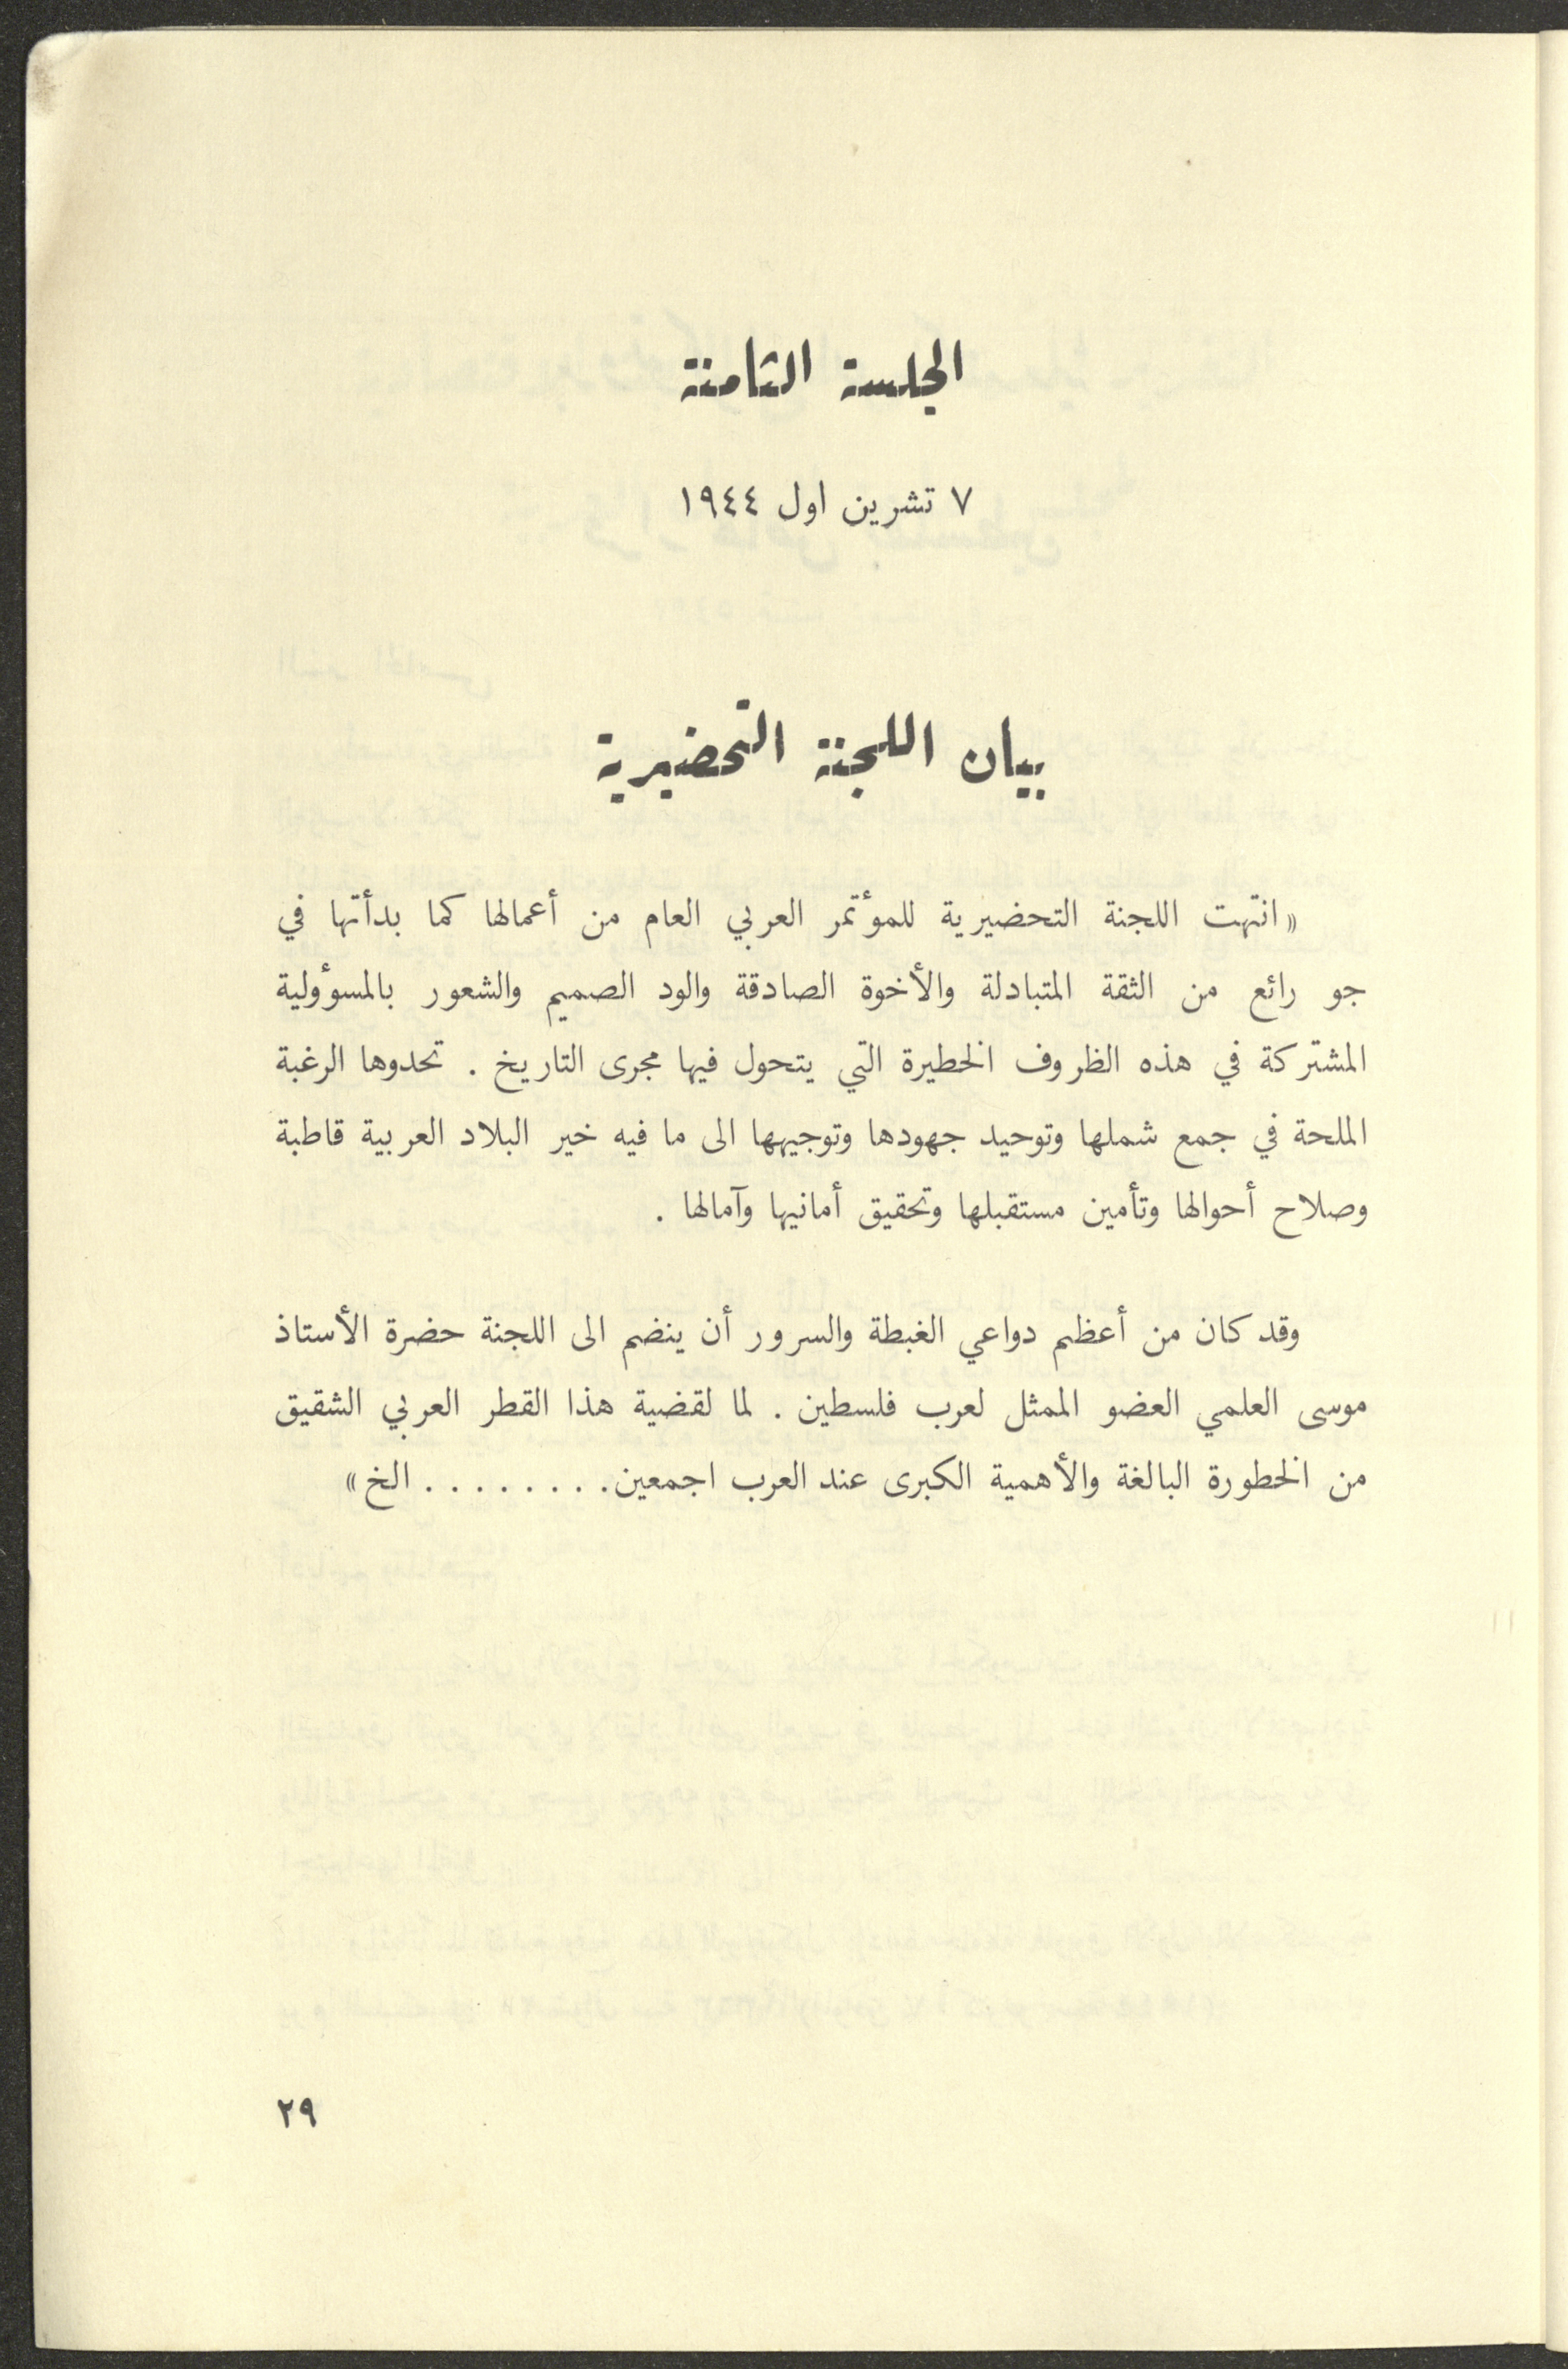 الجلسة الثامنة
٧ تشرين اول ١٩٤٤
بيان اللجنة التحضيرية
« انتهت اللجنة التحضيرية للمؤتمر العربي العام من أعمالها كما بدأتها في
جو رائع من الثقة المتبادلة والأخوة الصادقة والود الصميم والشعور بالمسؤولية
المشتركة في هذه الظروف الخطيرة التي يتحول فيها مجرى التاريخ . تحدوها الرغبة
الملحة في جمع شملها وتوحيد جهودها وتوجيهها الى ما فيه خير البلاد العربية قاطبة
وصلاح أحوالها وتأمين مستقبلها وتحقيق أمانيها وآمالها .
وقد كان من أعظم دواعي الغبطة والسرور أن ينضم الى اللجنة حضرة الأستاذ
موسى العلمي العضو الممثل لعرب فلسطين . لما لقضية هذا القطر العربي الشقيق
من الخطورة البالغة والأهمية الكبرى عند العرب اجمعين. . . . . . . . الخ »
٢٩